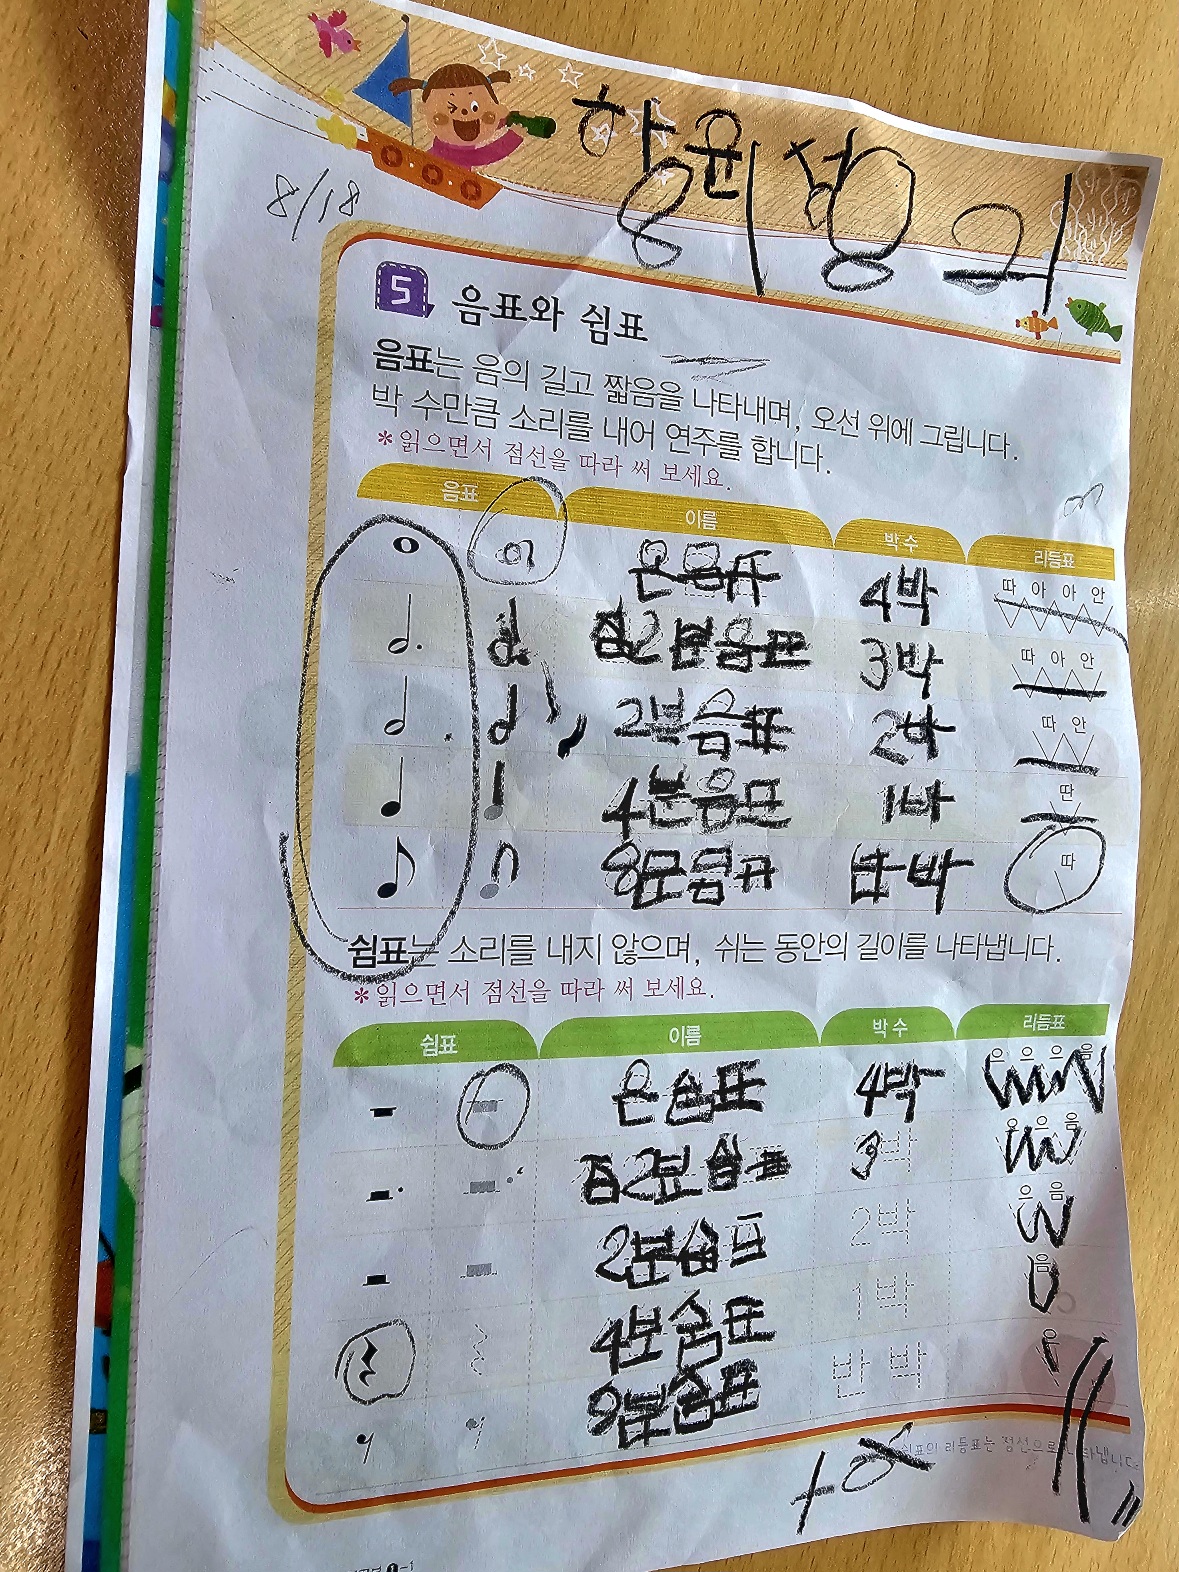 8/18
5 음표와 쉼표
음표는 음의 길고 짧음을 나타내며, 오선 위에 그립니다.
박 수만큼 소리를 내어 연주를 합니다.
*읽으면서 점선을 따라 써 보세요.
음표 이름 박수 리듬표
온음표 4박 따 아 아 안
점2분음표 3박 따 아 안
2분음표 2박 따 안
4분음표 1박 딴
8분음표 반박 따
쉼표는 소리를 내지 않으며, 쉬는 동안의 길이를 나타냅니다.
*읽으면서 점선을 따라 써 보세요.
쉼표 이름 박수 리듬표
온쉼표 4박 으 으 으 음
점2분쉼표 3박 으 으 음
2분쉼표 2박 으 음
4분쉼표 1박 음
8분쉼표 반박 으
쉼표의 리듬표는 점선으로 나타냅니다.